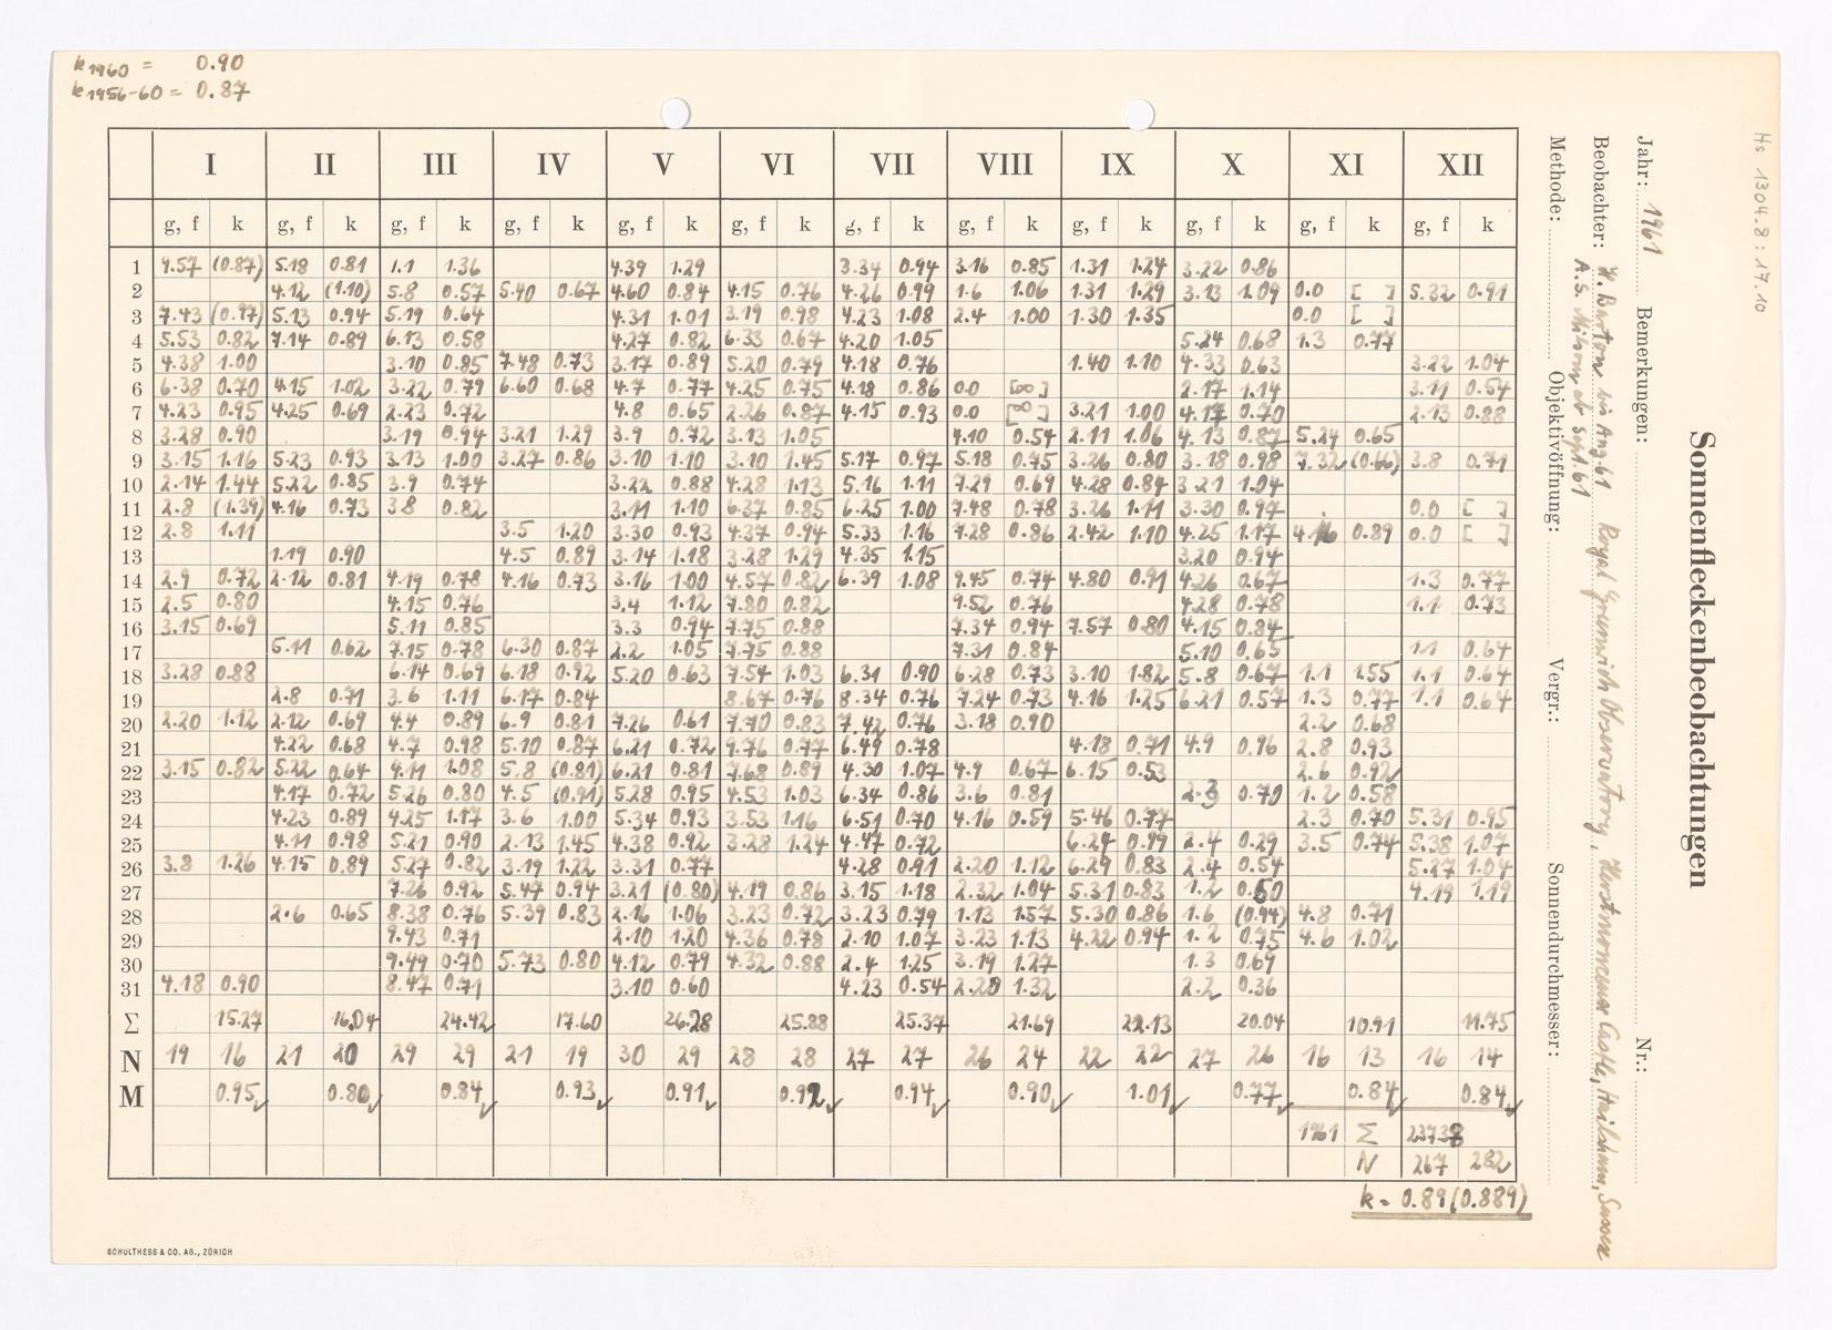 k1960 = 0.90
k1956-60 = 0.87
I II III IV V VI VII VIII IX X XI XII
g, f k g, f k g, f k g, f k g, f k g, f k g, f k g, f k g, f k g, f k g, f k g, f k
1 9.57 (0.87) 5.18 0.81 1.1 1.36 4.39 1.29 3.34 0.94 3.16 0.85 1.31 1.24 3.22 0.86
2 4.12 (1.10) 5.8 0.57 5.40 0.67 4.60 0.84 4.15 0.76 4.26 0.99 1.6 1.06 1.31 1.29 3.13 1.09 0.0 [ ] 5.32 0.91
3 7.43 (0.77) 5.13 0.94 5.19 0.64 4.31 1.01 3.19 0.98 4.23 1.08 2.4 1.00 1.30 1.35 0.0 [ ]
4 5.53 0.82 7.14 0.89 6.13 0.58 4.27 0.82 6.33 0.67 4.20 1.05 5.24 0.68 1.3 0.77
5 4.38 1.00 3.10 0.85 7.48 0.73 3.17 0.89 5.20 0.79 4.18 0.76 1.40 1.10 4.33 0.63 3.22 1.04
6 6.38 0.70 4.15 1.02 3.22 0.79 6.60 0.68 4.7 0.77 4.25 0.75 4.18 0.86 0.0 [∞] 2.17 1.14 3.11 0.54
7 4.23 0.95 4.25 0.69 2.23 0.72 4.8 0.65 2.26 0.87 4.15 0.93 0.0 [∞] 3.21 1.00 4.17 0.70 2.13 0.88
8 3.28 0.90 3.19 0.94 3.21 1.29 3.9 0.72 3.13 1.05 4.10 0.54 2.11 1.06 4.13 0.87 5.24 0.65
9 3.15 1.16 5.23 0.93 3.13 1.00 3.27 0.86 3.10 1.10 3.10 1.45 5.17 0.97 5.18 0.75 3.26 0.80 3.18 0.98 7.32 (0.66) 3.8 0.71
10 2.14 1.44 5.22 0.85 3.9 0.74 3.22 0.88 4.28 1.13 5.16 1.11 7.29 0.69 4.28 0.84 3.21 1.04
11 2.8 (1.39) 4.16 0.73 3.8 0.82 3.11 1.10 6.37 0.85 6.25 1.00 7.48 0.78 3.26 1.11 3.30 0.97 0.0 [ ]
12 2.8 1.11 3.5 1.20 3.30 0.93 4.37 0.94 5.33 1.16 7.28 0.86 2.42 1.10 4.25 1.17 4.16 0.89 0.0 [ ]
13 1.19 0.90 4.5 0.89 3.14 1.18 3.28 1.29 4.35 1.15 3.20 0.94
14 2.9 0.72 2.12 0.81 4.19 0.78 4.16 0.73 3.16 1.00 4.57 0.82 6.39 1.08 9.45 0.74 4.80 0.91 4.26 0.67 1.3 0.77
15 2.5 0.80 4.15 0.76 3.4 1.12 7.80 0.82 9.52 0.76 4.28 0.78 1.1 0.73
16 3.15 0.69 5.11 0.85 3.3 0.94 7.75 0.88 7.34 0.94 7.57 0.80 4.15 0.84
17 5.11 0.62 7.15 0.78 6.30 0.87 2.2 1.05 7.75 0.88 7.31 0.84 5.10 0.65 1.1 0.64
18 3.28 0.88 6.14 0.69 6.18 0.92 5.20 0.63 7.54 1.03 6.31 0.90 6.28 0.73 3.10 1.82 5.8 0.67 1.1 1.55 1.1 0.64
19 2.8 0.71 3.6 1.11 6.17 0.84 8.67 0.76 8.34 0.76 7.24 0.73 4.16 1.25 6.21 0.57 1.3 0.77 1.1 0.64
20 2.20 1.12 2.12 0.69 4.4 0.89 6.9 0.81 7.26 0.61 7.70 0.83 7.42 0.76 3.18 0.90 2.2 0.68
21 4.22 0.68 4.7 0.98 5.10 0.87 6.21 0.72 9.76 0.77 6.49 0.78 4.18 0.71 4.9 0.96 2.8 0.93
22 3.15 0.82 5.22 0.64 4.11 1.08 5.8 (0.81) 6.21 0.81 7.68 0.89 4.30 1.07 4.9 0.67 6.15 0.53 2.6 0.92
23 4.17 0.72 5.26 0.80 4.5 (0.91) 5.28 0.95 4.53 1.03 6.34 0.86 3.6 0.81 2.3 0.70 1.2 0.58
24 4.23 0.89 4.25 1.17 3.6 1.00 5.34 0.93 3.53 1.16 6.51 0.70 4.16 0.59 5.46 0.77 2.3 0.70 5.31 0.95
25 4.11 0.98 5.21 0.90 2.13 1.45 4.38 0.92 3.28 1.24 4.47 0.72 6.24 0.99 2.4 0.29 3.5 0.74 5.38 1.07
26 3.8 1.26 4.15 0.89 5.27 0.82 3.19 1.22 3.31 0.77 4.28 0.91 2.20 1.12 6.29 0.83 2.4 0.54 5.27 1.04
27 7.26 0.92 5.47 0.94 3.21 (0.80) 4.19 0.86 3.15 1.18 2.32 1.04 5.31 0.83 1.2 0.50 4.19 1.19
28 2.6 0.65 8.38 0.76 5.39 0.83 2.16 1.06 3.23 0.72 3.23 0.79 1.13 1.57 5.30 0.86 1.6 (0.94) 4.8 0.71
29 9.43 0.71 2.10 1.20 4.36 0.78 2.10 1.07 3.23 1.13 4.22 0.94 1.2 0.75 4.6 1.02
30 9.49 0.70 5.73 0.80 4.12 0.79 4.32 0.88 2.4 1.25 3.19 1.27 1.3 0.69
31 4.18 0.90 8.47 0.71 3.10 0.60 4.23 0.54 2.20 1.32 2.2 0.36
Σ 15.27 16.04 24.42 17.60 26.28 25.88 25.37 21.69 22.13 20.04 10.91 11.75
N 19 16 21 20 29 29 21 19 30 29 28 28 27 27 26 24 22 22 27 26 16 13 16 14
M 0.95 0.80 0.84 0.93 0.91 0.92 0.94 0.90 1.01 0.77 0.84 0.84
1961 Σ 23738
N 267 282
k = 0.89 (0.889)
SCHULTHESS & CO. AG., ZÜRICH
Hs 1304.8:17.10
Sonnenfleckenbeobachtungen
Jahr: 1961 Bemerkungen: Nr.:
Beobachter: W. Barton bis Aug. 61 Royal Greenwich Observatory, Herstmonceux Castle, Hailsham, Sussex
A.S. Milsom ab Sept. 61
Methode: Objektivöffnung: Vergr.: Sonnendurchmesser: